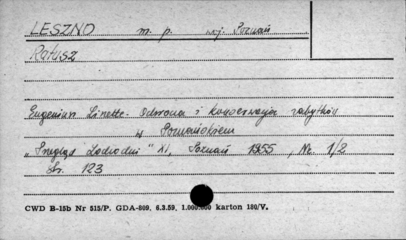 LESZNO m. p. woj. Poznań
Ratusz
Eugeniusz Linette. Ochrona i konserwacja zabytków
w Poznańskiem
"Przegląd Zachodni" XI, Poznań 1955, Nr. 1/2
Str. 123
CWD B-15b Nr 515/P. GDA-809. 6.3.59. 1.000.000 karton 180/V.